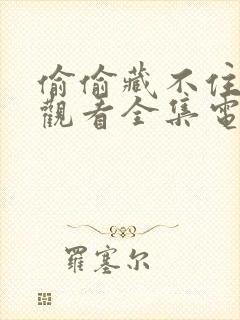 偷偷藏不住
觀看全集電
羅塞尔